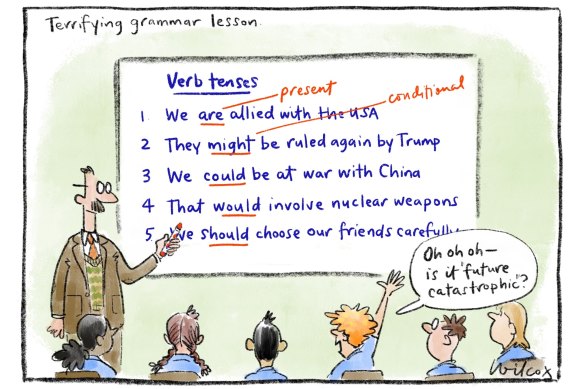 Terrifying grammar lesson.
Verb tenses
present
conditional
1 We are allied with the USA
2 They might be ruled again by Trump
3 We could be at war with China
4 That would involve nuclear weapons
5 We should choose our friends carefully
Oh oh oh—
is it 'future
catastrophic'?
Wilcox